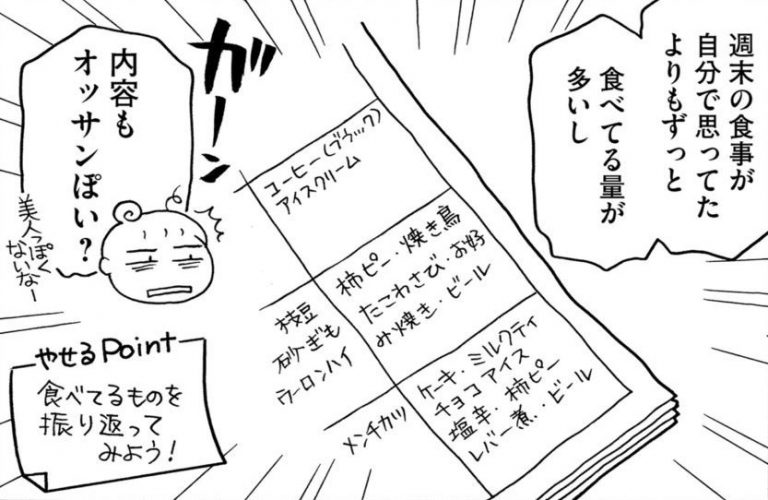 週末の食事が
自分で思ってた
よりもずっと
食べてる量が
多いし
ガーン
内容も
オッサンぽい？
美人っぽく
ないなー
コーヒー(ブラック)
アイスクリーム
柿ピー・焼き鳥
たこわさび・お好
み焼き・ビール
枝豆
砂ぎも
ウーロンハイ
ケーキ・ミルクティ
チョコアイス
塩辛・柿ピー
レバー煮・ビール
メンチカツ
やせるPoint
食べてるものを
振り返って
みよう！